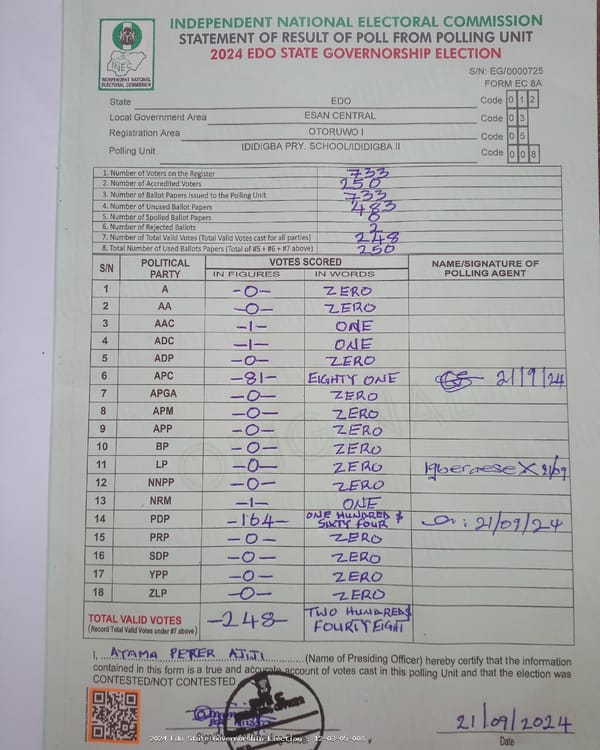 INDEPENDENT NATIONAL ELECTORAL COMMISSION
STATEMENT OF RESULT OF POLL FROM POLLING UNIT
2024 EDO STATE GOVERNORSHIP ELECTION
INEC
INDEPENDENT NATIONAL ELECTORAL COMMISSION
S/N: EG/0000725
FORM EC 8A
State EDO Code 0 1 2
Local Government Area ESAN CENTRAL Code 0 3
Registration Area OTORUWO I Code 0 5
Polling Unit IDIDIGBA PRY. SCHOOL/IDIDIGBA II Code 0 0 8
1. Number of Voters on the Register 733
2. Number of Accredited Voters 250
3. Number of Ballot Papers Issued to the Polling Unit 733
4. Number of Unused Ballot Papers 483
5. Number of Spoiled Ballot Papers 0
6. Number of Rejected Ballots 2
7. Number of Total Valid Votes (Total Valid Votes cast for all parties) 248
8. Total Number of Used Ballots Papers (Total of #5 + #6 + #7 above) 250
S/N POLITICAL PARTY VOTES SCORED NAME/SIGNATURE OF POLLING AGENT
IN FIGURES IN WORDS
1 A -0- ZERO
2 AA -0- ZERO
3 AAC -1- ONE
4 ADC -1- ONE
5 ADP -0- ZERO
6 APC -81- EIGHTY ONE 21/9/24
7 APGA -0- ZERO
8 APM -0- ZERO
9 APP -0- ZERO
10 BP -0- ZERO
11 LP -0- ZERO
12 NNPP -0- ZERO
13 NRM -1- ONE
14 PDP -164- ONE HUNDRED & SIXTY FOUR 21/09/24
15 PRP -0- ZERO
16 SDP -0- ZERO
17 YPP -0- ZERO
18 ZLP -0- ZERO
TOTAL VALID VOTES -248- TWO HUNDRED & FOURTY EIGHT
(Record Total Valid Votes under #7 above)
I, AYAMA PETER AJIJI (Name of Presiding Officer) hereby certify that the information
contained in this form is a true and accurate account of votes cast in this polling Unit and that the election was
CONTESTED/NOT CONTESTED
21/09/2024
Date
2024 Edo State Governorship Election - 12-03-05-008